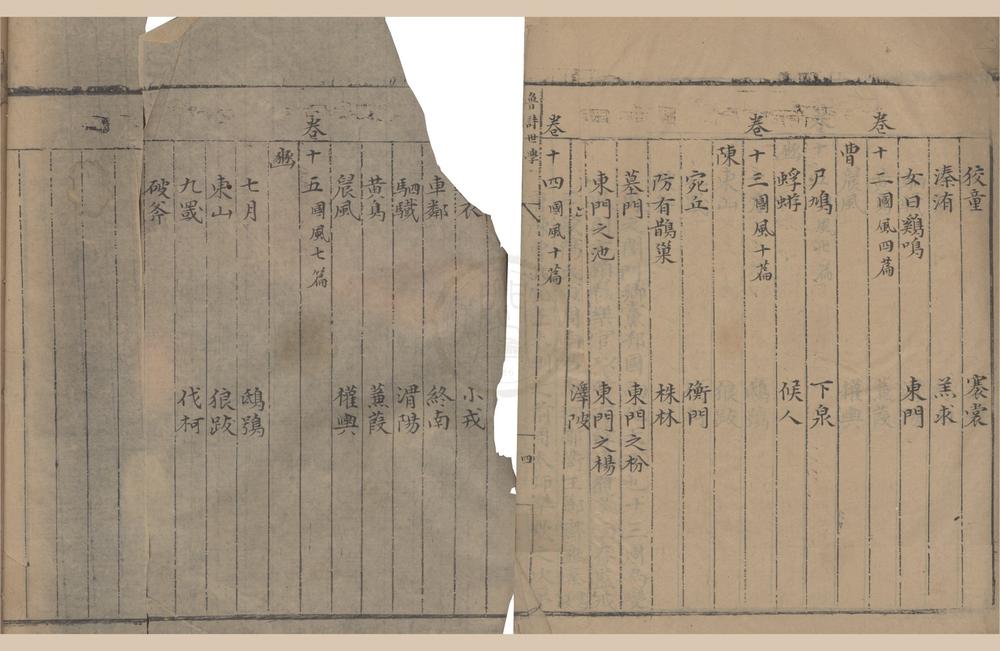 狡童 褰裳
溱洧 羔求
女曰鷄鳴 東門
卷十二國風四篇
曹
尸鳩 下泉
蜉蝣 候人
卷十三國風十篇
陳
宛丘 衡門
防有鵲巢 株林
墓門 東門之枌
東門之池 東門之楊
澤陂
卷十四國風十篇
魯詩世學 四
衣 小戎
車鄰 終南
駟驖 渭陽
黃鳥 蒹葭
晨風 權輿
卷十五國風七篇
豳
七月 鴟鴞
東山 狼跋
九罭 伐柯
破斧